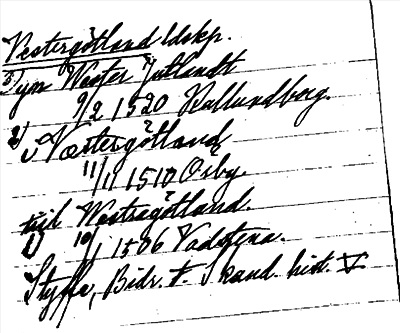 Vestergötland ldskp.
3) yn Wæster Jutlandt
9/2 1520 Kallundborg.
2) i Næstergötland
11/11 1510 Örby.
1) tijl Westregötland.
10/1 1506 Vadstena.
Styffe, Bidr. t. Skand. hist. V